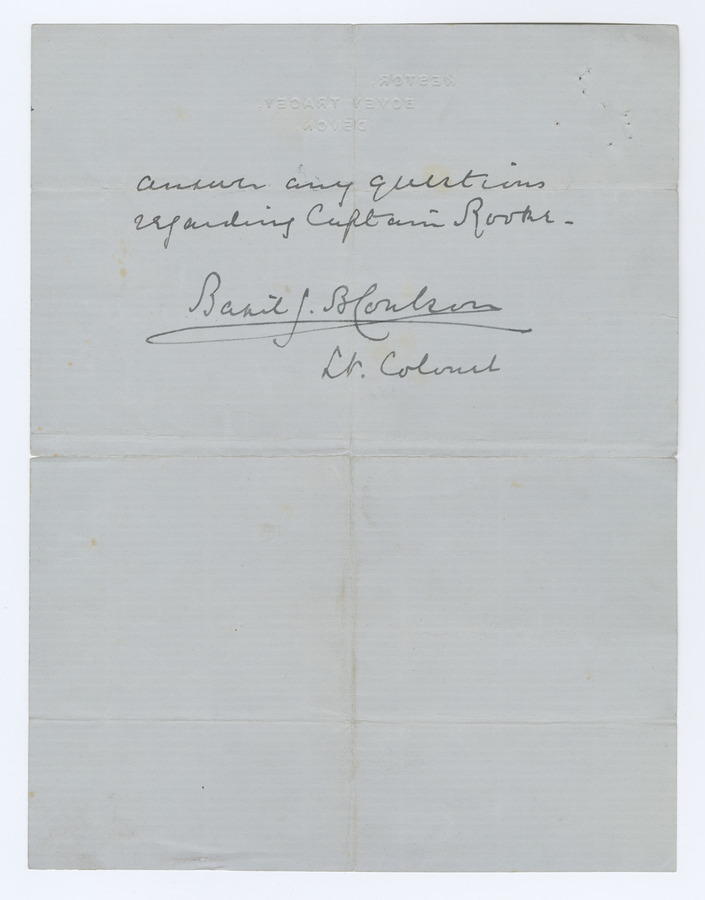 KESTOR,
BOVEY TRACEY,
DEVON.
answer any questions
regarding Captain Rooke -
Basil J. B Coulson
Lt. Colonel